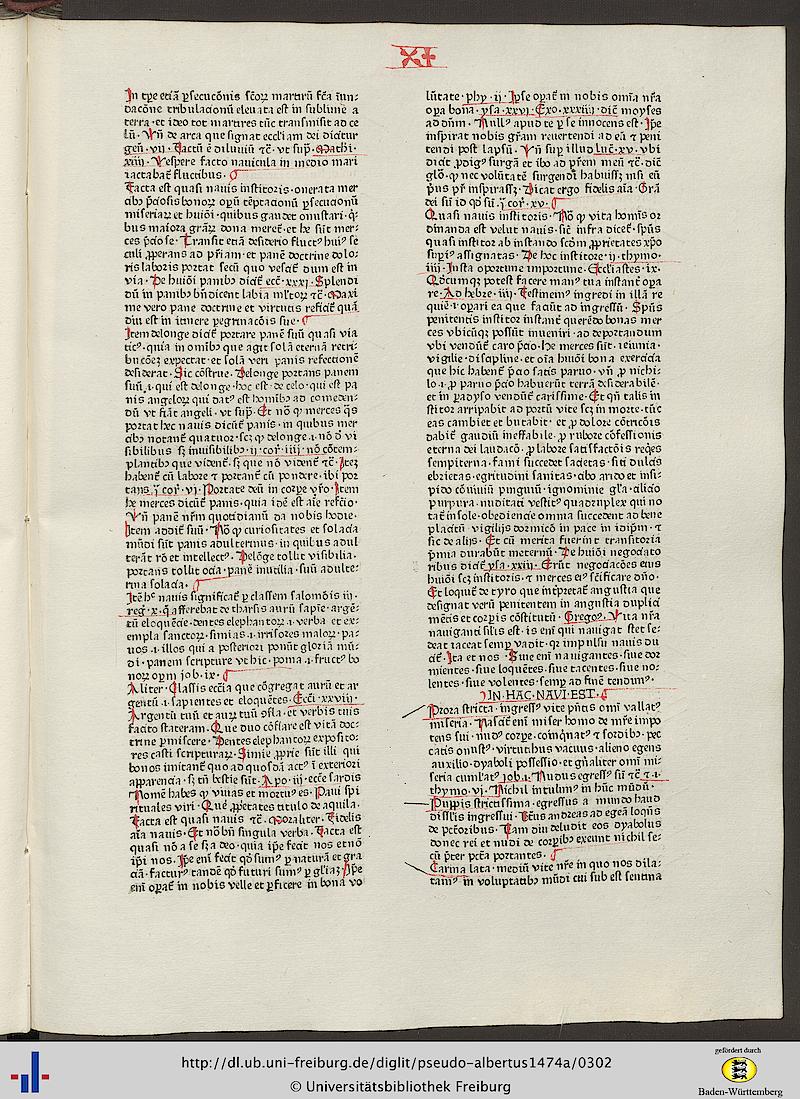 XI
In tpe etiã ꝑsecucõnis sc̃oꝝ martirũ fc̃a iun-
dacõne tribulacionũ eleuata est in sublime a
terra · et ideo tot martires tũc transmisit ad ce
lũ · Vñ de arca que signat eccliam dei dicitur
geñ · vii · Factũ ẽ diluuiũ ⁊c̃ · vt supͣ · Mathi ·
xiiii · Vespere facto nauicula in medio mari
iactabat̃ fluctibus ·
Facta est quasi nauis institoris · onerata mer
cibꝰ p̃ciosis bonoꝝ opũ tẽptacionũ ꝑsecucionũ
miseriaꝝ et huiõi · quibus gaudet onustari · q̃-
bus maiora gr̃aꝝ dona meret̃ · et he sũt mer-
ces p̃ciose · Transit etiã desiderio fluctꝰ huiꝰ se
culi ꝓperans ad pr̃iam · et panẽ doctrine dolo-
ris laboris portat secũ quo vescit̃ dum est in
via · De huiõi panibꝰ dicit̃ ecc̃ · xxxi · Splendi
dũ in panibꝰ bñdicent labia ml̃toꝝ ⁊c̃ · Maxi
me vero pane doctrine et virtutis reficit̃ quã
diu est in itinere peg̃rinacõis sue ·
Item delonge dicit̃ portare panẽ suũ quasi via
ticũ · quia in om̃ibꝰ que agit solã eternã retri-
bucõeꝫ expectat · et solã veri panis refectionẽ
desiderat · Sic cõstrue · Delonge portans panem
suũ · i · qui est delonge · hoc est · de celo · qui est pa
nis angeloꝝ qui datꝰ est homĩbꝰ ad comeden-
dũ vt fiãt angeli · vt supͣ · Et nõ ꝙ merces q̃s
portat hec nauis dicũt̃ panis · in quibus mer
cibꝰ notant̃ quatuor · scꝫ ꝙ delonge · i · nõ d̃ vi
sibilibus sꝫ inuisibilibꝰ · ii · cor̃ · iiii · nõ cõtem-
plantibꝰ que vident̃ · sꝫ que nõ vident̃ ⁊c̃ · Iteꝫ
habent̃ cũ labore ⁊ portant̃ cũ pondere · ibi por
tans · i · cor̃ · vi · Portate deũ in corpe vr̃o · Item
he merces dicũt̃ panis · quia idẽ est aĩe refcĩo ·
Vñ panẽ nr̃m quotidianũ da nobis hodie ·
Item addit̃ suũ · Nõ ꝙ curiositates et solacia
mũdi sũt panis adulterinus · in quibus adul
terãt̃ rõ et intellectꝰ · Delõge tollit visibilia ·
portans tollit ocia · panẽ inutilia · suũ adulte-
rina solacia ·
Itẽ hꝰ nauis significat̃ ꝑ classem salomõis · iii ·
reg̃ · x · q̃ afferebat de tharsis aurũ sapĩe · argẽ-
tũ eloquẽcie · dentes elephantoꝝ · i · verba et ex-
empla sanctoꝝ · simias · i · irrisores maloꝝ · pa-
uos · i · illos qui a posteriori ponũt gloriã mũ-
di · panem scripture vt hic · poma · i · fructꝰ bo
noꝝ oꝑm · iob · ix ·
Aliter · Classis ecc̃ia que cõgregat aurũ et ar
gentũ · i · sapientes et eloquẽtes · Ecc̃i · xxviii ·
Argentũ tuũ et auꝝ tuũ ꝯfla · et verbis tuis
facito stateram · Que duo cõflare est vitã doc-
trine ꝑmiscere · Dentes elephantoꝝ exposito-
res casti scripturaꝝ · Simie ꝓprie sũt illi qui
bonos imitant̃ quo ad quosdã actꝰ ĩ exteriori
apparencia · sꝫ tñ bestie sũt · Apo · iii · ecc̃e sardis
Nomẽ habes ꝙ viuas et mortuꝰ es · Paui spi
rituales viri · Que ꝓp̃etates titulo de aquila ·
Facta est quasi nauis ⁊c̃ · Moraliter · Fidelis
aĩa nauis · Et nõ bñ singula verba · Facta est
quasi nõ a se sꝫ a deo · quia ip̃e fecit nos et nõ
ip̃i nos · Ip̃e enĩ fecit qd̃ sumꝰ ꝑ naturã et gra
ciã · facturꝰ tandẽ qd̃ futuri sumꝰ ꝑ gl̃iaꝫ Ip̃e
enĩ oꝑat̃ in nobis velle et ꝑficere in bona vo
lũtate · phy · ii · Ip̃e oꝑat̃ in nobis om̃ia nr̃a
opa bona · ysa · xxvi · Exo · xxxiiii · dic̃it moyses
ad dñm · Nullꝰ apud te ꝑ se innocens est · Ip̃e
inspirat nobis gr̃am reuertendi ad eũ ⁊ peni
tendi post lapsũ · Vñ suꝑ illud luc̃ · xv · vbi
dicit ꝓdigꝰ surgã et ibo ad pr̃em meũ ⁊c̃ · dic̃it
glõ · ꝙ nec volũtatẽ surgendi habuissꝫ nisi eũ
p̃us pr̃ inspirassꝫ · Dicat ergo fidelis aĩa · Gr̃a
dei sũ id qd̃ sũ · i · cor̃ · xv ·
Quasi nauis institoris · Nõ ꝙ vita homĩs or
dinanda est velut nauis · sic̃ infra dicet̃ · spũs
quasi institor ab instando scd̃m ꝓprietates xp̃o
suꝑiꝰ assignatas · De hoc institore · ii · thymo ·
iiii · Insta oportune importune · Ecclĩastes · ix ·
Qd̃cumqꝫ potest facere manꝰ tua instant̃ oꝑa
re · Ad hebre · iiii · Festinemꝰ ingredi in illã re
quiẽ · i · oꝑari ea que faciũt ad ingressũ · Spũs
penitentis institor instant̃ querẽdo bonas mer
ces vbicũqꝫ possũt inueniri · ad deportandum
vbi vendũt̃ caro p̃cio · He merces sũt · ieiunia ·
vigilie · disciplina · et oĩa huiõi bona exercicia
que hic habent̃ p̃cio satis paruo · vñ ꝓ nichi-
lo · i · ꝓ paruo p̃cio habuerũt terrã desiderabilẽ ·
et in ꝑadyso vendũt̃ carissime · Et qñ talis in
stitor arripabit ad portũ vite scꝫ in morte · tũc
eas cambiet et butabit · et ꝓ dolore cõtricõis
dabit̃ gaudiũ ineffabile · ꝓ rubore cõfessionis
eterna dei laudacõ · ꝓ labore satisfactõis reqes
sempiterna · fami succedet sacietas · siti dulcis
ebrietas · egritudini sanitas · cibo arido et insi-
pido cõuiuiũ pinguiũ · ignominie gl̃a · cilicio
purpura · nuditati vestitꝰ quadruplex qui no
tat̃ insole · obediẽcie omnia succedent ad bene
placitũ · vigilijs dormicõ in pace in idip̃m · ⁊
sic de alijs · Et cũ merita fuerint transitoria
p̃mia durabũt ineternũ · De huiõi negociato
ribus dicit̃ ysa · xxiii · Erũt negociacões eius
huiõi scꝫ institoris · ⁊ merces eiꝰ sc̃ificare dño ·
Et loquit̃ de tyro que int̃pretat̃ angustia que
designat verũ penitentem in angustia duplici
mẽtis et corꝑis cõstitutũ · Gregoꝰ · Vita nr̃a
nauiganci silis est · is enĩ qui nauigat stet se-
deat iaceat semꝑ vadit · qꝛ impulsu nauis du
cit̃ · Ita et nos · Siue enĩ nauigantes · siue dor
mientes · siue loquentes · siue tacentes · siue no-
lentes · siue volentes · semꝑ ad finẽ tendimꝰ ·
IN · HAC · NAVI · EST ·
Prora stricta · ingressꝰ vite pñtis om̃i vallatꝰ
miseria · Nascit̃ enĩ miser homo de mr̃e impo
tens sui · nudꝰ corpe · coinq̃natꝰ ⁊ sordibꝰ · pec
catis onustꝰ · virtutibus vacuus · alieno egens
auxilio · dyaboli possessio · et gñaliter om̃i mi-
seria cumlatꝰ · iob · i · Nudus egressꝰ sũ ⁊c̃ · ⁊ · i ·
thymo · vi · Nichil intulimꝰ in hũc mũdũ ·
Puppis strictissima · egressus a mundo haud
disslis ingressui · Tẽus andreas ad egeã loqñs
de pctõribus · Tam diu deludit eos dyabolus
donec rei et nudi de corꝑibꝰ exeunt nichil se-
cũ p̃ter pctã portantes ·
Carina lata · mediũ vite nr̃e in quo nos dila-
tamꝰ in voluptatibꝰ mũdi cui sub est sentina
http://dl.ub.uni-freiburg.de/diglit/pseudo-albertus1474a/0302
© Universitätsbibliothek Freiburg
gefördert durch
Baden-Württemberg